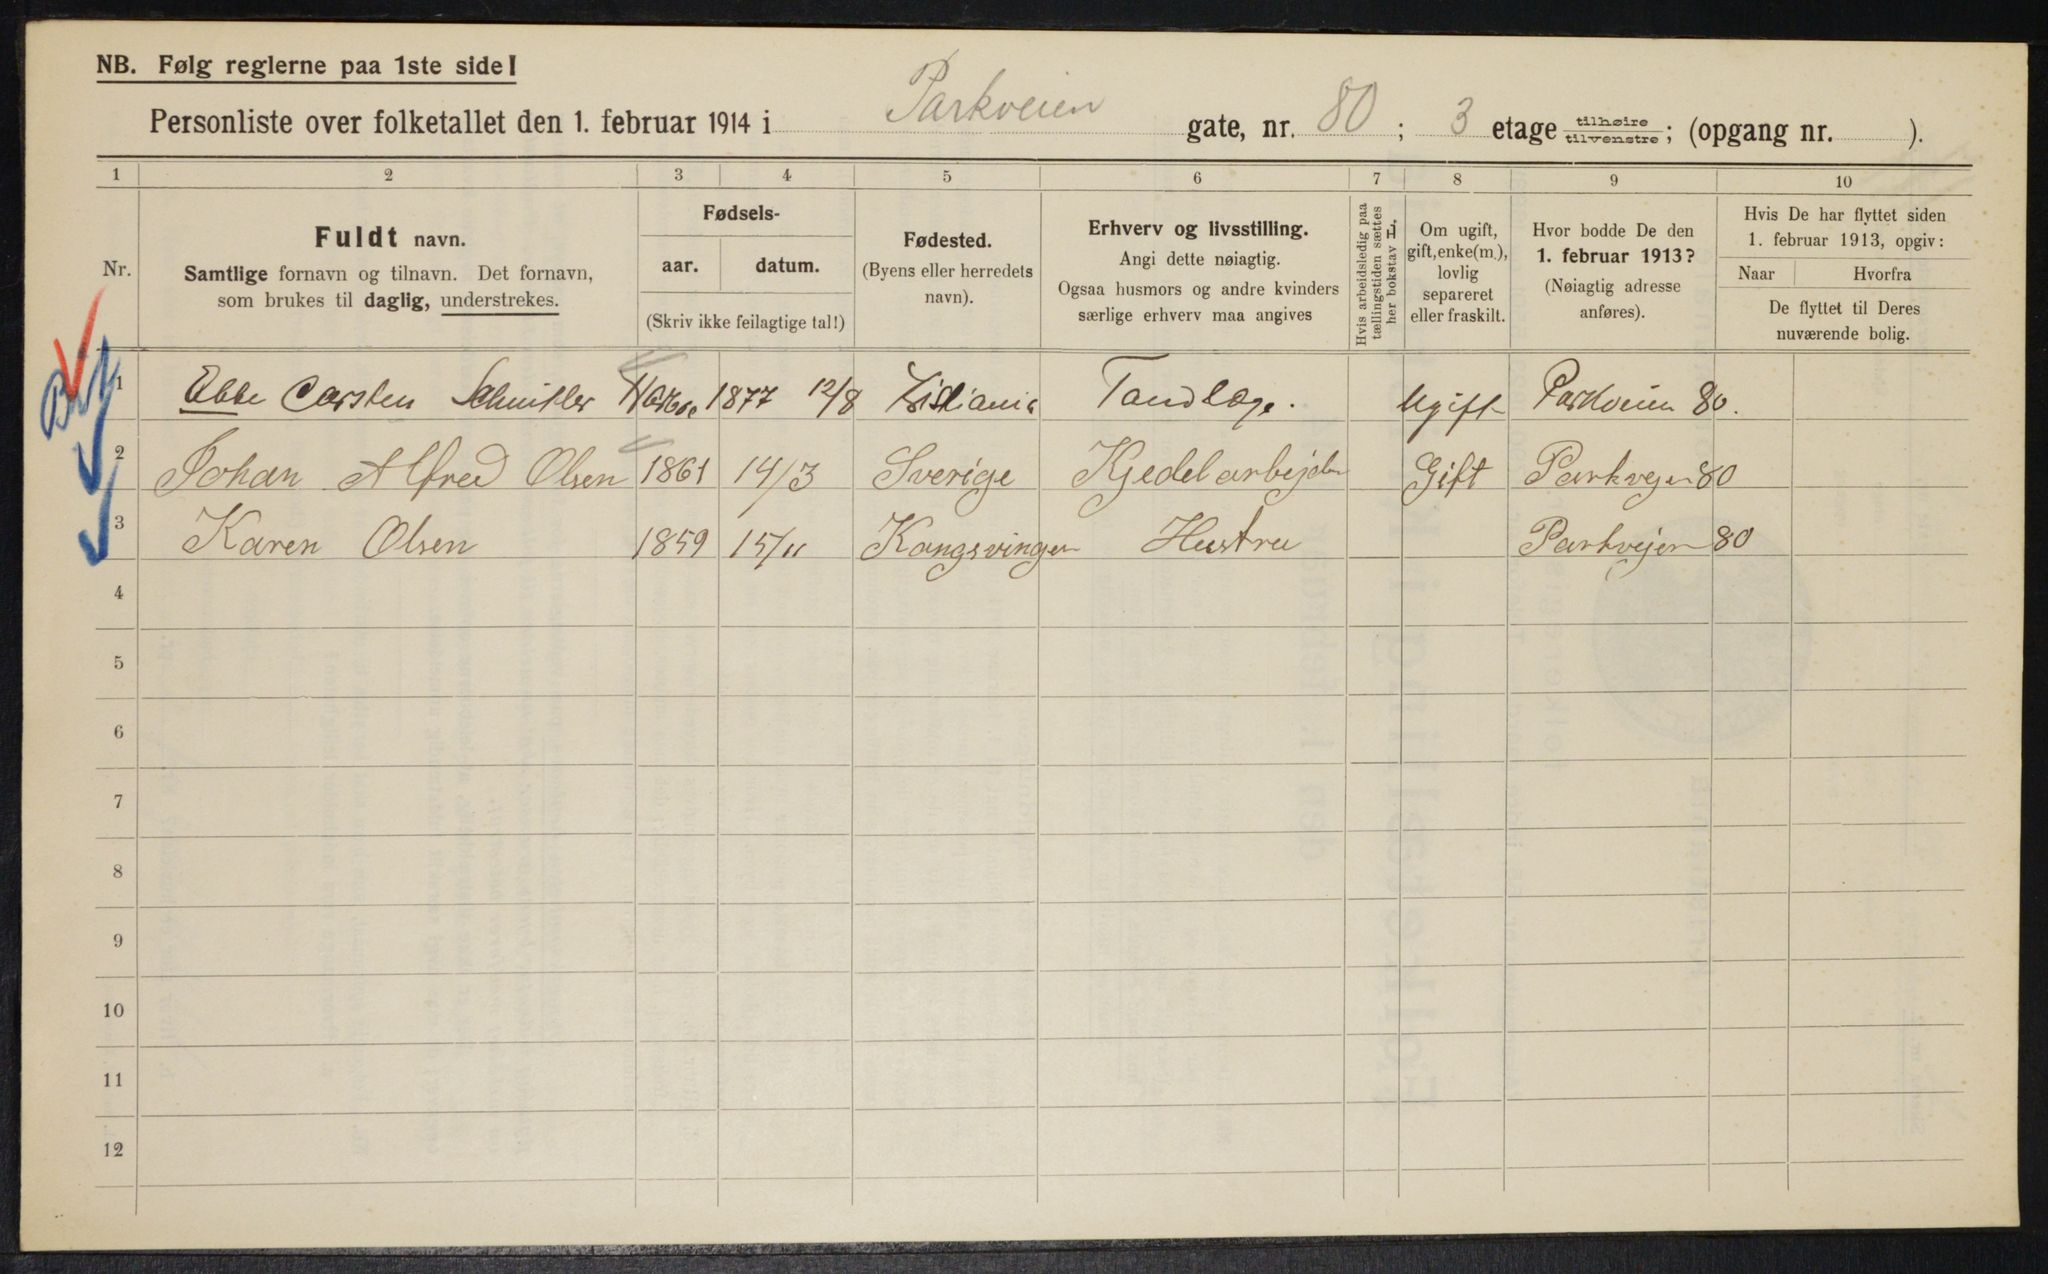 NB. Følg reglerne paa 1ste side!
Personliste over folketallet den 1. februar 1914 i Parkveien gate, nr. 80 ; 3 etage tilhøire tilvenstre ; (opgang nr. ).
1 2 3 4 5 6 7 8 9 10
Nr.
Fuldt navn.
Samtlige fornavn og tilnavn. Det fornavn,
som brukes til daglig, understrekes.
Fødsels-
aar. datum.
(Skriv ikke feilagtige tal!)
Fødested.
(Byens eller herredets
navn).
Erhverv og livsstilling.
Angi dette nøiagtig.
Ogsaa husmors og andre kvinders
særlige erhverv maa angives
Hvis arbeidsledig paa
tællingstiden sættes
her bokstav L.
Om ugift,
gift, enke(m.),
lovlig
separeret
eller fraskilt.
Hvor bodde De den
1. februar 1913?
(Nøiagtig adresse
anføres).
Hvis De har flyttet siden
1. februar 1913, opgiv:
Naar Hvorfra
De flyttet til Deres
nuværende bolig.
1 Ebbe Carsten Schnitler 1877 12/8 Kristiania Tandlæge. Ugift Parkveien 80.
2 Johan Alfred Olsen 1861 14/3 Sverige Kjedelarbejder Gift Parkvejen 80
3 Karen Olsen 1859 15/11 Kongsvinger Hustru Parkvejen 80
4
5
6
7
8
9
10
11
12